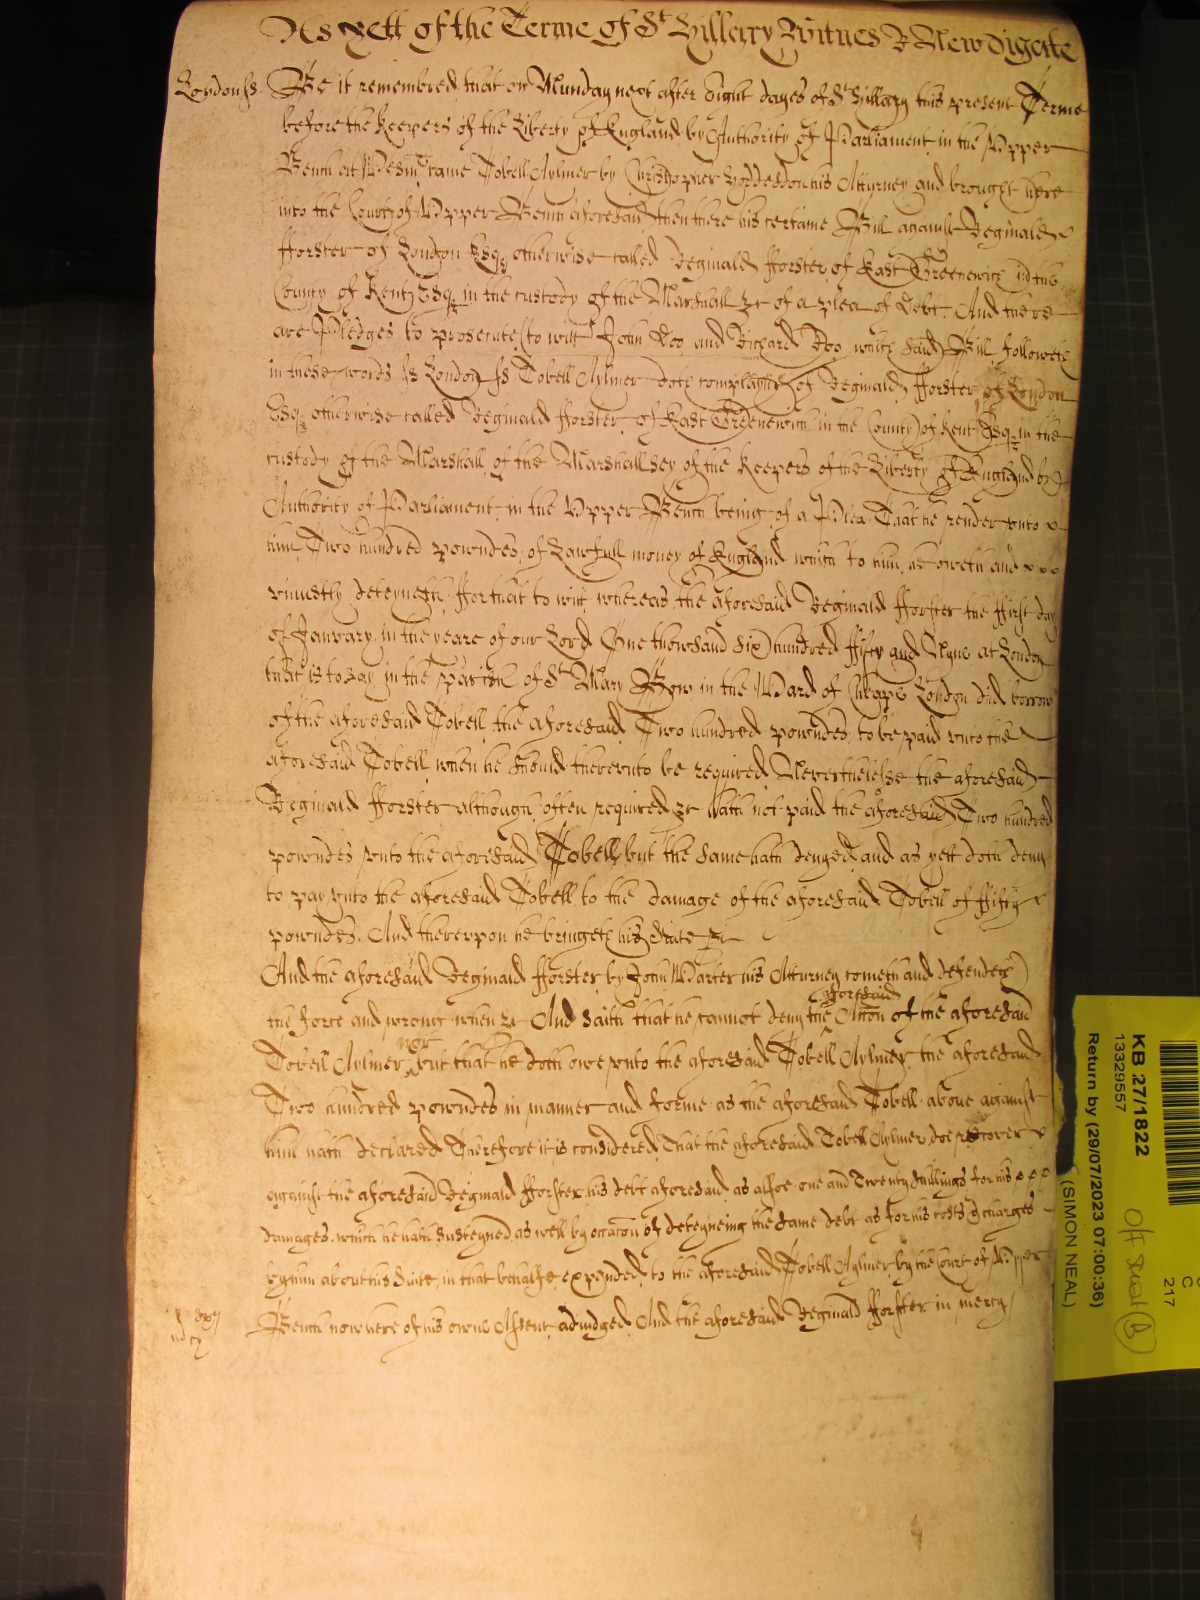 As yett of the Terme of St Hillary Witnes R Newdigate
London ss. Be it remembred that on Munday next after Eight dayes of St Hillary this present Terme
before the Keepers of the Liberty of England by Authority of Parliament in the Upper
Bench att Westmr came Tobell Aylmer by Christopher Hoddesdon his Atturney and brought here
into the Court of Upper Bench aforesaid then there his certaine Bill against Reginald
fforster of London Esqr otherwise called Reginald fforster of East Greenewich in the
County of Kent Esqr in the custody of the Marshall &c of a plea of Debt. And there
are Pledges to prosecute (to witt) John Doo and Richard Roo which said Bill followeth
in these words ss London ss Tobell Aylmer doth complayne of Reginald fforster of London
Esqr otherwise called Reginald fforster of East Greenewich in the County of Kent Esqr in the
custody of the Marshall of the Marshallsey of the Keepers of the Liberty of England by
Authority of Parliament in the Upper Bench being of a Plea That he render unto
him Two hundred powndes of Lawfull money of England which to him he oweth and
uniustly deteyneth ffor that to witt whereas the aforesaid Reginald fforster the ffirst day
of January in the yeare of our Lord One thowsand six hundred ffifty and Nyne at London
that is to say in the parish of St Mary Bow in the Ward of Cheape London did borrow
of the aforesaid Tobell the aforesaid Two hundred powndes to be paid unto the
aforesaid Tobell when he should thereunto be required Neverthelesse the aforesaid
Reginald fforster although often required &c hath not paid the aforesaid Two hundred
powndes unto the aforesaid Tobell but the same hath denyed and as yett doth deny
to pay unto the aforesaid Tobell to the damage of the aforesaid Tobell of ffifty
powndes. And thereupon he bringeth his Suite &c
And the aforesaid Reginald fforster by John Warter his Atturney cometh and defendeth
the force and wrong when &c And saith that he cannot deny the aforesaid Accon of the aforesaid
Tobell Aylmer nor but that he doth owe unto the aforesaid Tobell Aylmer the aforesaid
Two hundred powndes in manner and forme as the aforesaid Tobell above against
him hath declared Therefore it is considered That the aforesaid Tobell Aylmer doe recover
against the aforesaid Reginald fforster his debt aforesaid as alsoe one and Twenty shillings for his
damages which he hath susteyned as well by occacon of deteyneing the same debt as for his costs & charges
by him about his Suite in that behalfe expended to the aforesaid Tobell Aylmer by the Court of Upper
Bench now here of his owne Assent adiudged And the aforesaid Reginald fforster in mercy
KB 27/1822
13329557
Return by (29/07/2023 07:00:36)
(SIMON NEAL)
C
217